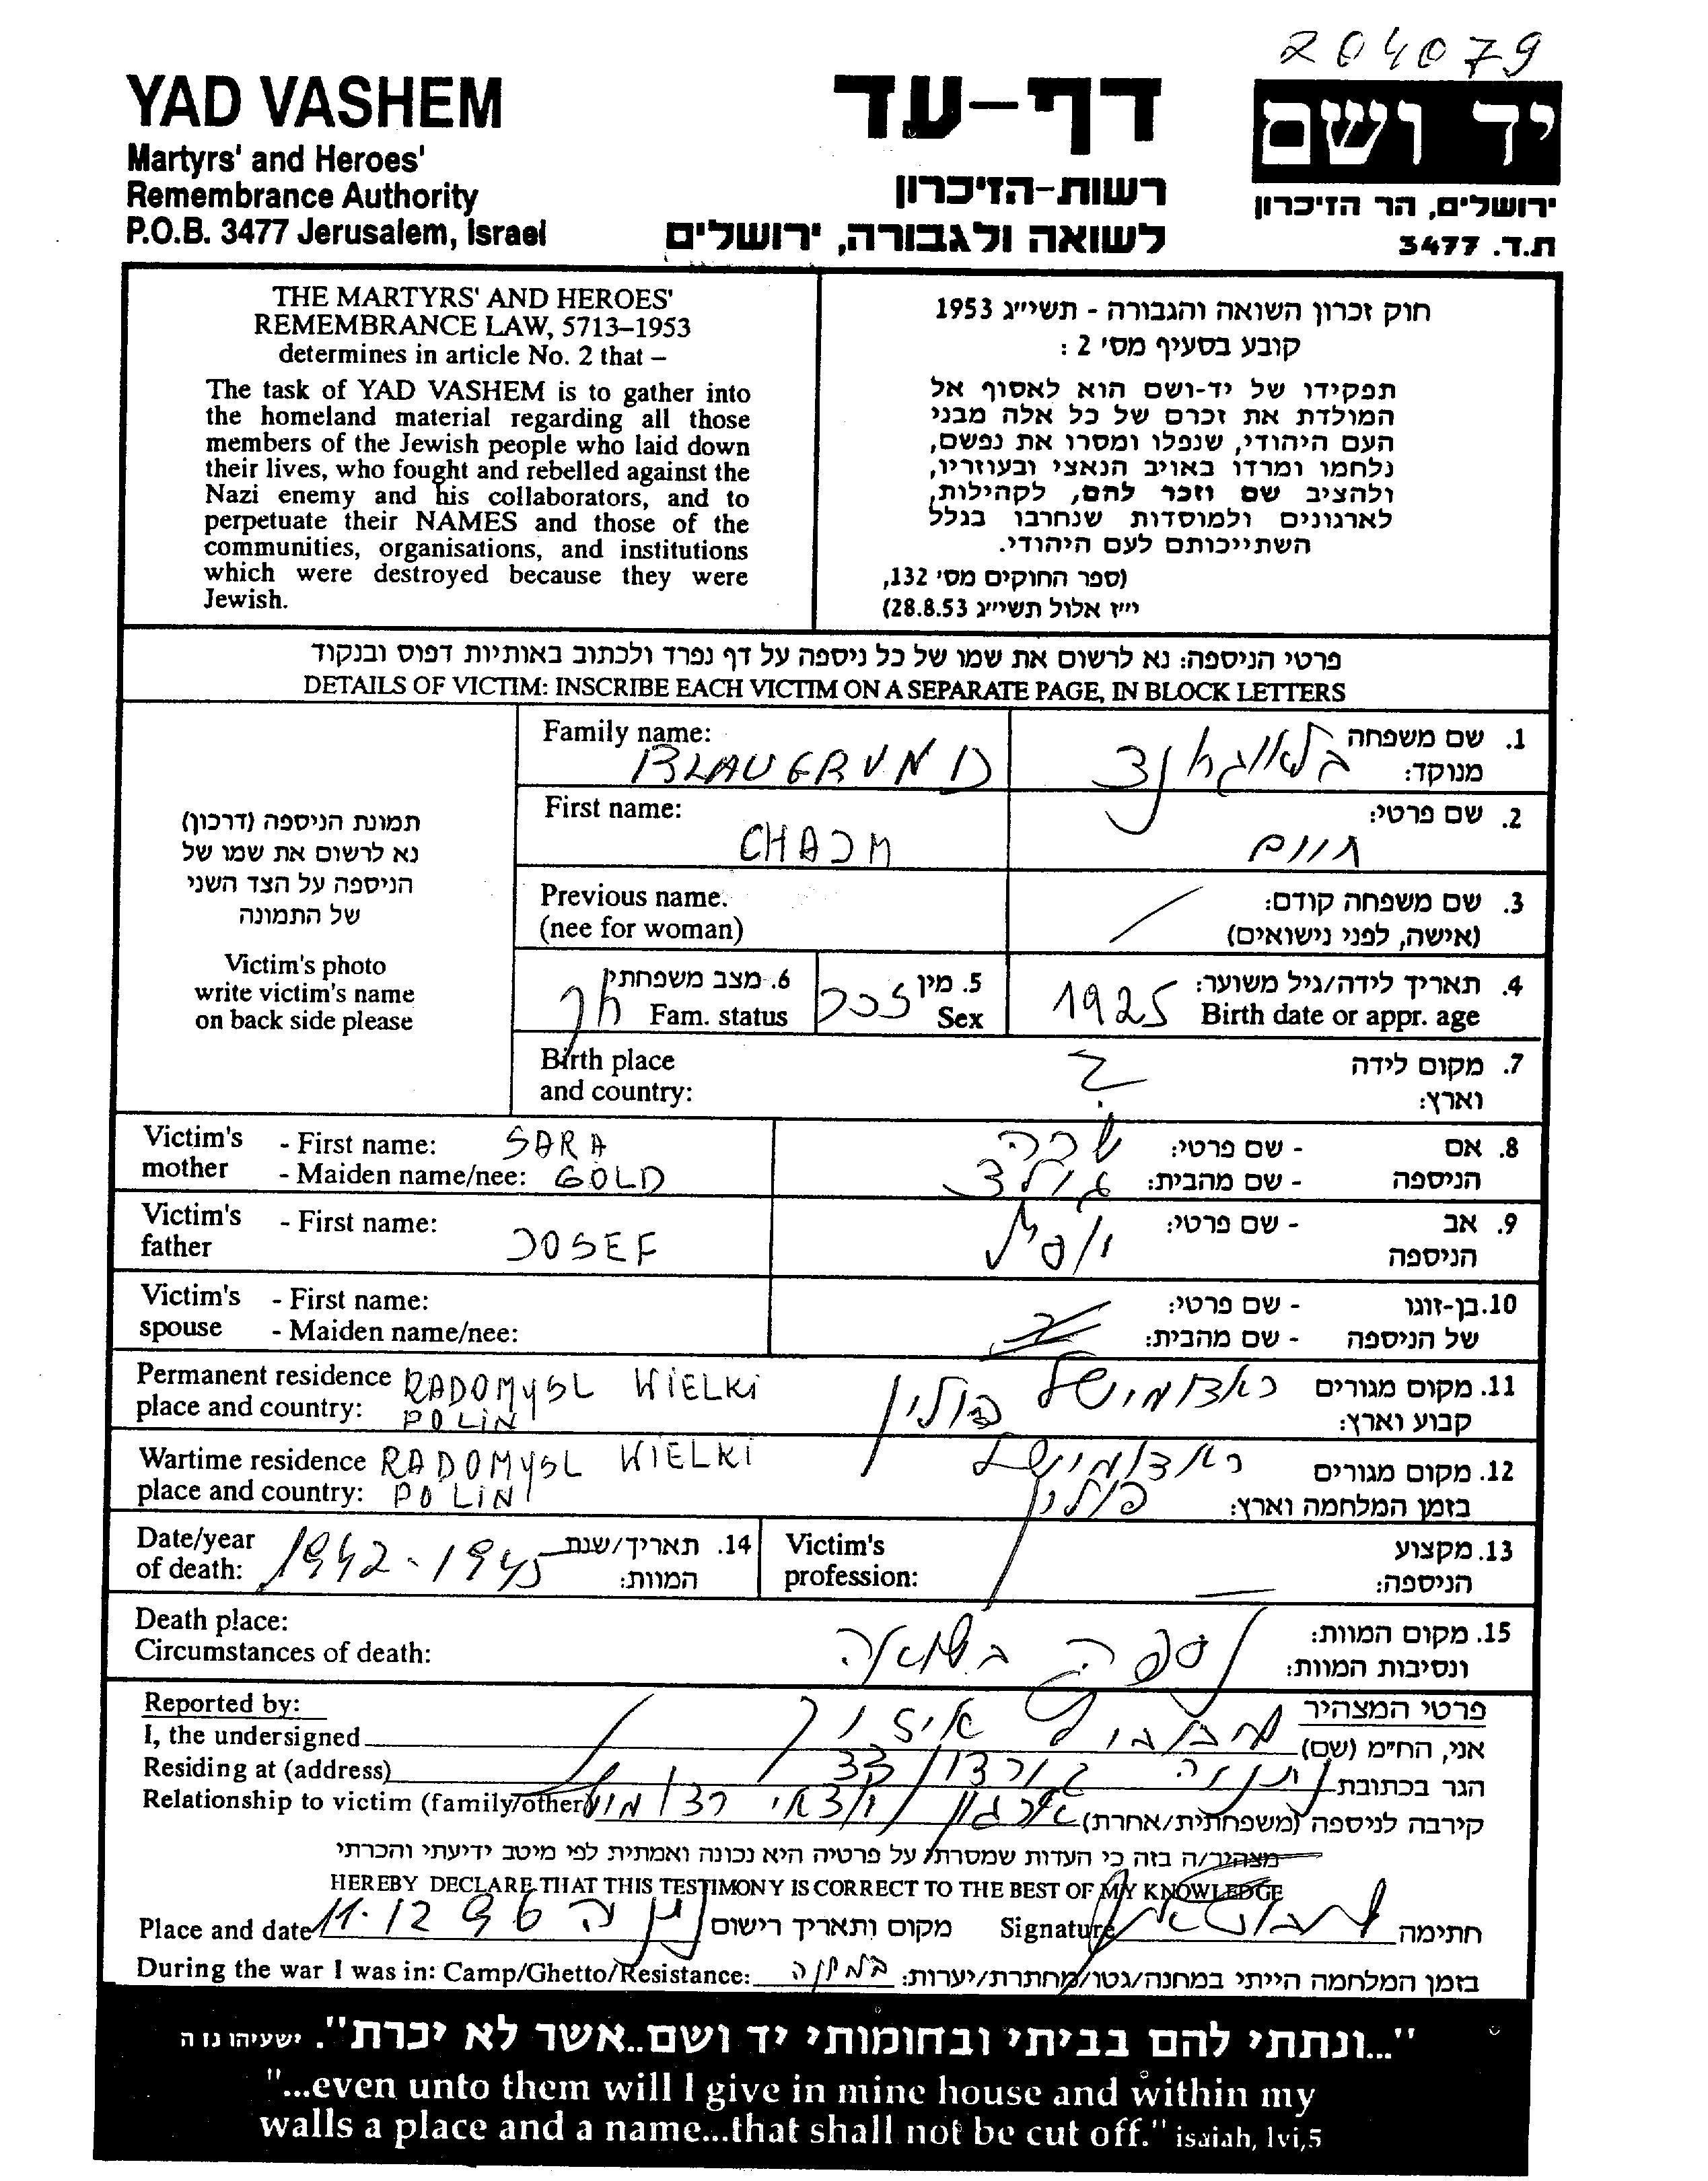 204079
YAD VASHEM
Martyrs' and Heroes'
Remembrance Authority
P.O.B. 3477 Jerusalem, Israel
דף-עד
רשות-הזיכרון
לשואה ולגבורה, ירושלים
יד ושם
ירושלים, הר הזיכרון
ת.ד. 3477
THE MARTYRS' AND HEROES'
REMEMBRANCE LAW, 5713–1953
determines in article No. 2 that –
The task of YAD VASHEM is to gather into
the homeland material regarding all those
members of the Jewish people who laid down
their lives, who fought and rebelled against the
Nazi enemy and his collaborators, and to
perpetuate their NAMES and those of the
communities, organisations, and institutions
which were destroyed because they were
Jewish.
חוק זכרון השואה והגבורה - תשי״ג 1953
קובע בסעיף מס׳ 2 :
תפקידו של יד-ושם הוא לאסוף אל
המולדת את זכרם של כל אלה מבני
העם היהודי, שנפלו ומסרו את נפשם,
נלחמו ומרדו באויב הנאצי ובעוזריו,
ולהציב שם וזכר להם, לקהילות,
לארגונים ולמוסדות שנחרבו בגלל
השתייכותם לעם היהודי.
(ספר החוקים מס׳ 132,
י״ז אלול תשי״ג 28.8.53)
פרטי הניספה: נא לרשום את שמו של כל ניספה על דף נפרד ולכתוב באותיות דפוס ובנקוד
DETAILS OF VICTIM: INSCRIBE EACH VICTIM ON A SEPARATE PAGE, IN BLOCK LETTERS
תמונת הניספה (דרכון)
נא לרשום את שמו של
הניספה על הצד השני
של התמונה
Victim's photo
write victim's name
on back side please
Family name: BLAUGRUND
1. שם משפחה
מנוקד:
First name: CHAJM
2. שם פרטי: חיים
Previous name.
(nee for woman)
3. שם משפחה קודם:
(אישה, לפני נישואים)
4. תאריך לידה/גיל משוער:
Birth date or appr. age 1925
5. מין זכר
Sex
6. מצב משפחתי
Fam. status
Birth place
and country:
7. מקום לידה
וארץ: ?
Victim's mother - First name: SARA
- Maiden name/nee: GOLD
8. אם - שם פרטי: שרה
הניספה - שם מהבית: גולד
Victim's father - First name: JOSEF
9. אב - שם פרטי: יוסף
הניספה
Victim's spouse - First name:
- Maiden name/nee:
10. בן-זוגו - שם פרטי:
של הניספה - שם מהבית:
Permanent residence RADOMYSL WIELKI
place and country: POLIN
11. מקום מגורים ראדומישל
קבוע וארץ: פולין
Wartime residence RADOMYSL WIELKI
place and country: POLIN
12. מקום מגורים ראדומישל
בזמן המלחמה וארץ: פולין
Date/year
of death: 1942-1945
14. תאריך/שנת
המוות:
Victim's
profession:
13. מקצוע
הניספה:
Death place:
Circumstances of death:
15. מקום המוות:
ונסיבות המוות: נספה בשואה
Reported by:
פרטי המצהיר
I, the undersigned
אני, הח״מ (שם)
Residing at (address)
הגר בכתובת נתניה גורדון
Relationship to victim (family/other)
קירבה לניספה (משפחתית/אחרת) ארגון יוצאי
מצהיר/ה בזה כי העדות שמסרתי על פרטיה היא נכונה ואמתית לפי מיטב ידיעתי והכרתי
HEREBY DECLARE THAT THIS TESTIMONY IS CORRECT TO THE BEST OF MY KNOWLEDGE
Place and date 11.12 96 נתניה מקום ותאריך רישום
Signature חתימה
During the war I was in: Camp/Ghetto/Resistance: במחנה בזמן המלחמה הייתי במחנה/גטו/מחתרת/יערות:
"...ונתתי להם בביתי ובחומותי יד ושם..אשר לא יכרת". ישעיהו נו ה
"...even unto them will I give in mine house and within my
walls a place and a name...that shall not be cut off." isaiah, lvi,5